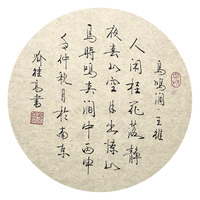 鳥鳴澗·王維
人閑桂花落靜
夜春山空月出驚山
鳥時鳴春澗中丙申
年仲秋月於南京